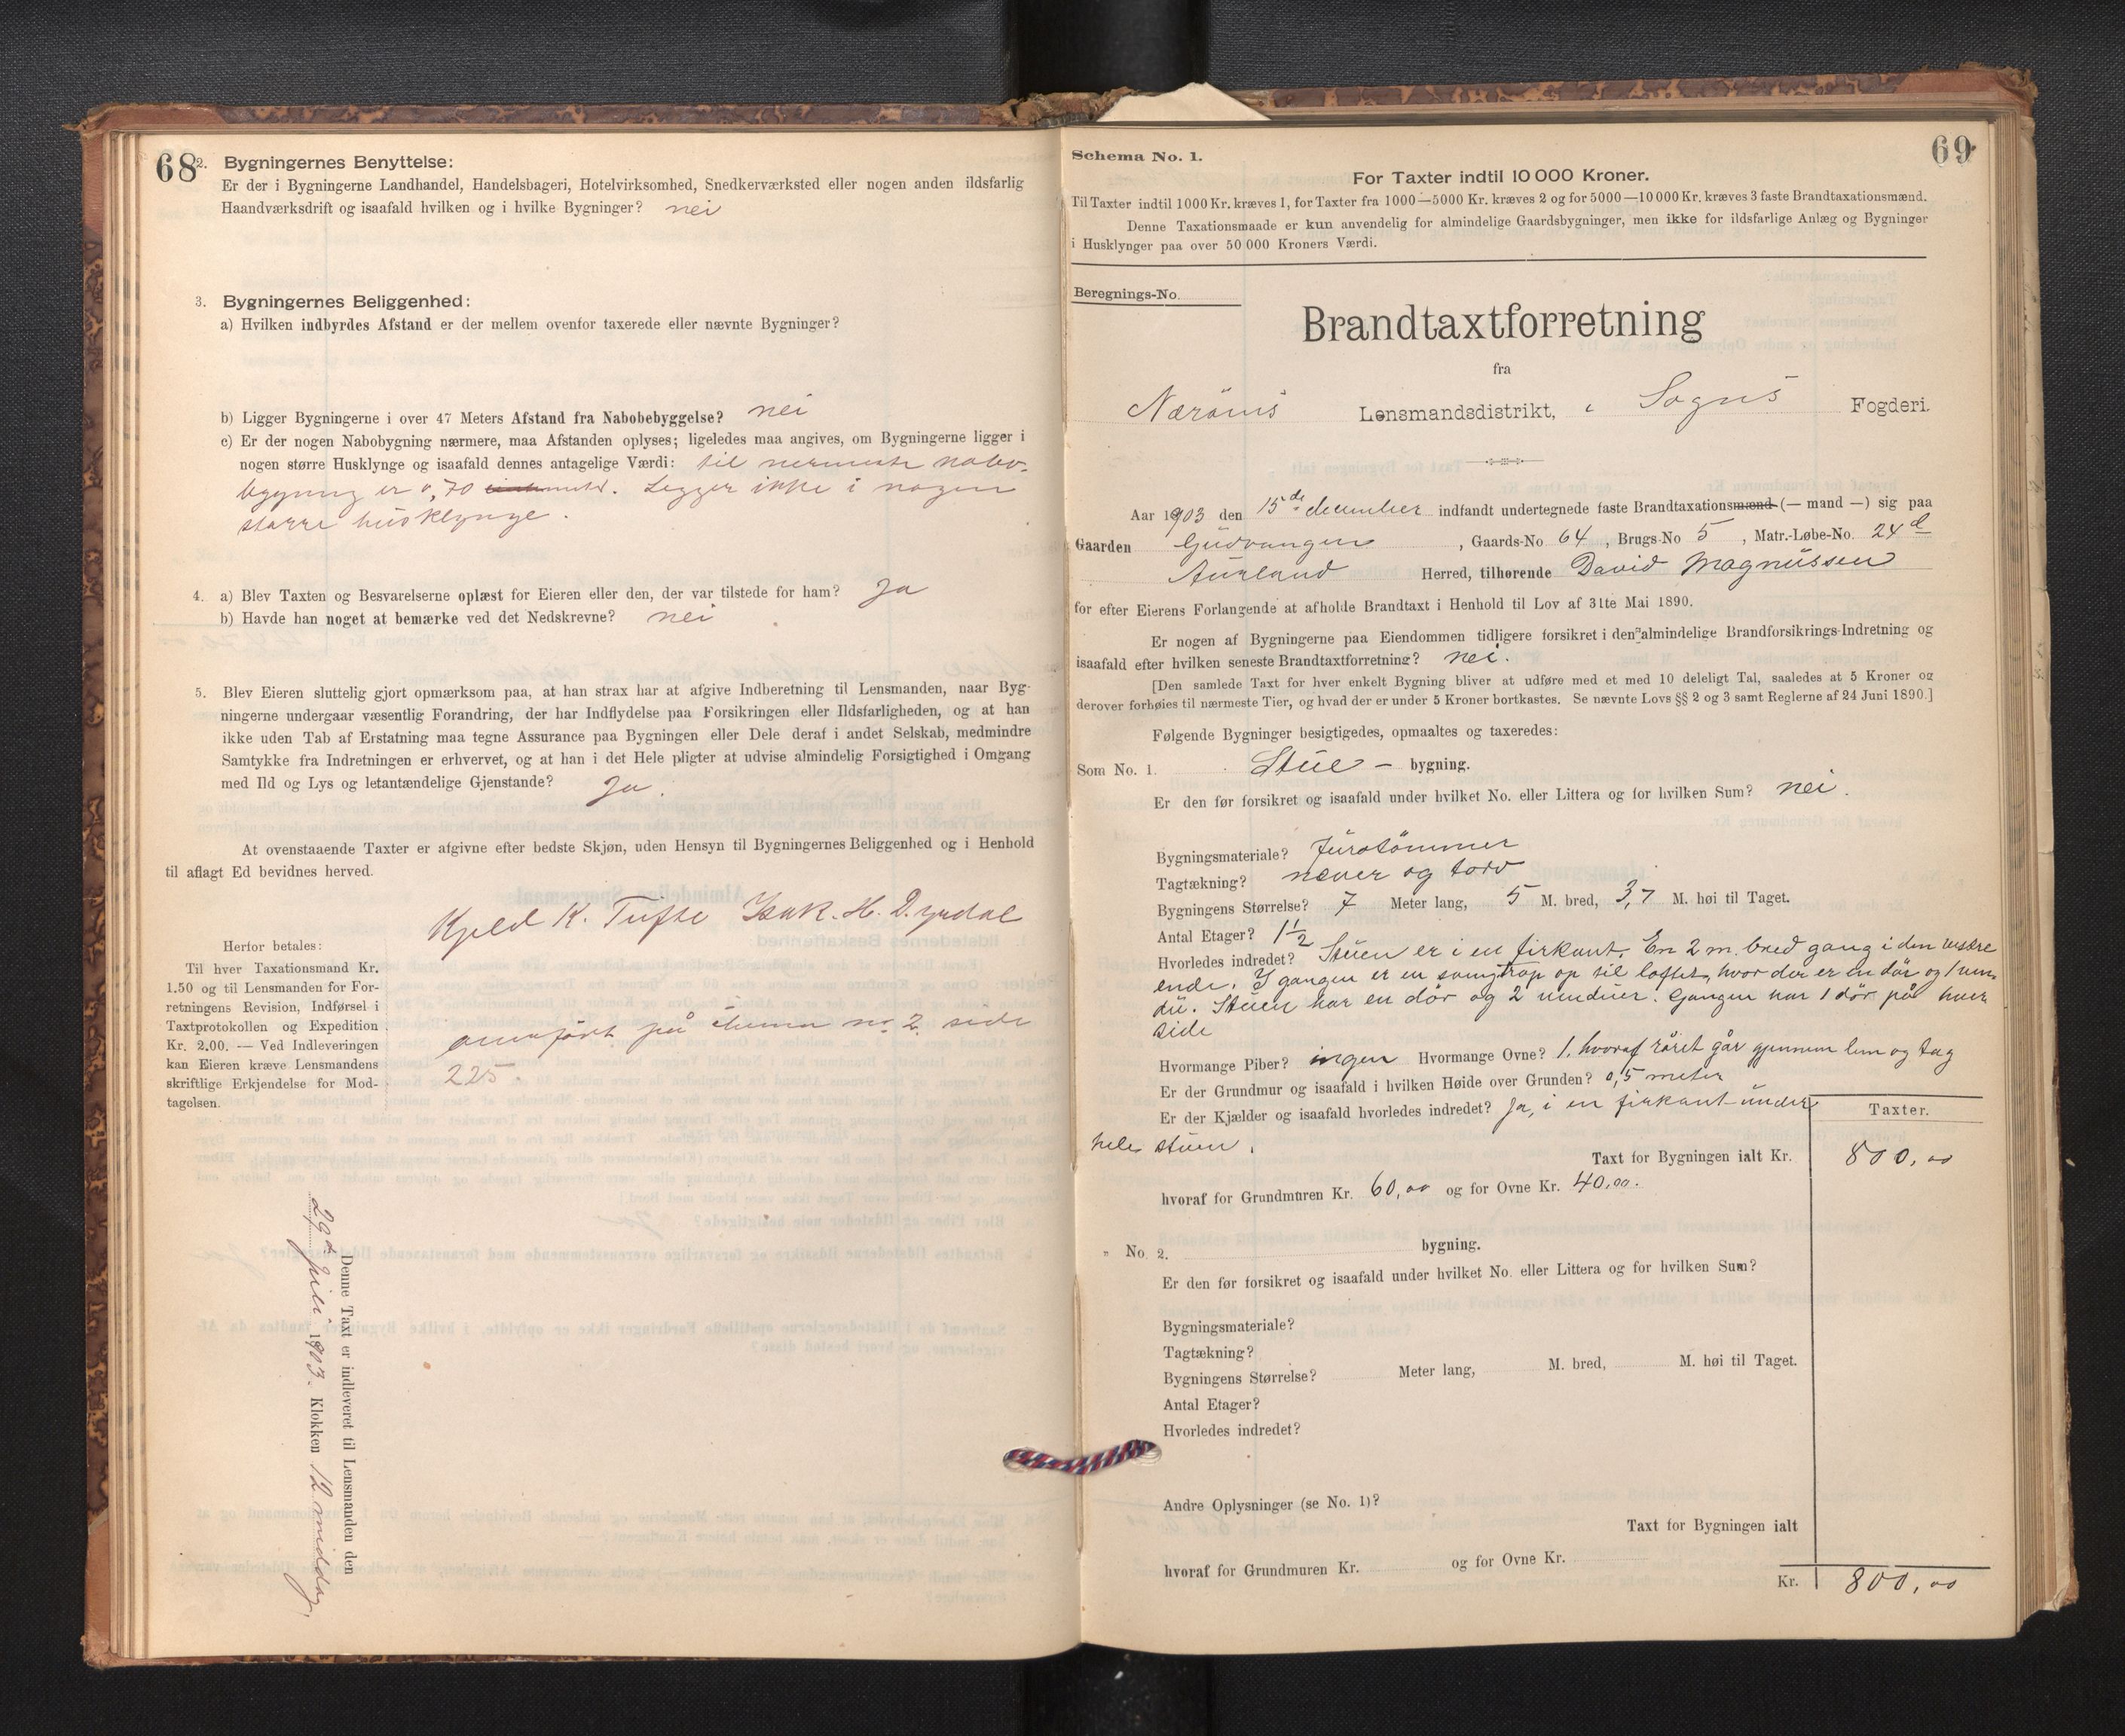 68
2. Bygningernes Benyttelse:
Er der i Bygningerne Landhandel, Handelsbageri, Hotelvirksomhed, Snedkerværksted eller nogen anden ildsfarlig
Haandværksdrift og isaafald hvilken og i hvilke Bygninger? nei
3. Bygningernes Beliggenhed:
a) Hvilken indbyrdes Afstand er der mellem ovenfor taxerede eller nævnte Bygninger?
b) Ligger Bygningerne i over 47 Meters Afstand fra Nabobebyggelse? nei
c) Er der nogen Nabobygning nærmere, maa Afstanden oplyses; ligeledes maa angives, om Bygningerne ligger i
nogen større Husklynge og isaafald dennes antagelige Værdi: til nermeste nabo-
bygning er 0,70 meter. Legger ikke i nogen
større husklynge.
4. a) Blev Taxten og Besvarelserne oplæst for Eieren eller den, der var tilstede for ham? Ja
b) Havde han noget at bemærke ved det Nedskrevne? nei
5. Blev Eieren sluttelig gjort opmærksom paa, at han strax har at afgive Indberetning til Lensmanden, naar Byg-
ningerne undergaar væsentlig Forandring, der har Indflydelse paa Forsikringen eller Ildsfarligheden, og at han
ikke uden Tab af Erstatning maa tegne Assurance paa Bygningen eller Dele deraf i andet Selskab, medmindre
Samtykke fra Indretningen er erhvervet, og at han i det Hele pligter at udvise almindelig Forsigtighed i Omgang
med Ild og Lys og letantændelige Gjenstande? Ja.
At ovenstaaende Taxter er afgivne efter bedste Skjøn, uden Hensyn til Bygningernes Beliggenhed og i Henhold
til aflagt Ed bevidnes herved.
Kjeld K. Tufte Isak. H. Dyrdal
Herfor betales:
Til hver Taxationsmand Kr.
1.50 og til Lensmanden for For-
retningens Revision, Indførsel i
Taxtprotokollen og Expedition
Kr. 2.00. — Ved Indleveringen
kan Eieren kræve Lensmandens
skriftlige Erkjendelse for Mod-
tagelsen.
omført på skema no 2 side
225.
Denne Taxt er indleveret til Lensmanden den
29de juli 1903. Klokken 12 middag.
69
Schema No. 1.
For Taxter indtil 10 000 Kroner.
Til Taxter indtil 1000 Kr. kræves 1, for Taxter fra 1000—5000 Kr. kræves 2 og for 5000—10 000 Kr. kræves 3 faste Brandtaxationsmænd.
Denne Taxationsmaade er kun anvendelig for almindelige Gaardsbygninger, men ikke for ildsfarlige Anlæg og Bygninger
i Husklynger paa over 50 000 Kroners Værdi.
Beregnings-No.
Brandtaxtforretning
fra
Nærøens Lensmandsdistrikt, i Sogns Fogderi.
Aar 1903 den 15de december indfandt undertegnede faste Brandtaxationsmænd (— mand —) sig paa
Gaarden Gudvangen, Gaards-No 64, Brugs-No 5, Matr.-Løbe-No. 24d
Aurland Herred, tilhørende David Magnussen
for efter Eierens Forlangende at afholde Brandtaxt i Henhold til Lov af 31te Mai 1890.
Er nogen af Bygningerne paa Eiendommen tidligere forsikret i den almindelige Brandforsikrings-Indretning og
isaafald efter hvilken seneste Brandtaxtforretning? nei.
[Den samlede Taxt for hver enkelt Bygning bliver at udføre med et med 10 deleligt Tal, saaledes at 5 Kroner og
derover forhøies til nærmeste Tier, og hvad der er under 5 Kroner bortkastes. Se nævnte Lovs §§ 2 og 3 samt Reglerne af 24 Juni 1890.]
Følgende Bygninger besigtigedes, opmaaltes og taxeredes:
Som No. 1. Stue- bygning.
Er den før forsikret og isaafald under hvilket No. eller Littera og for hvilken Sum? nei.
Bygningsmateriale? furutømmer
Tagtækning? never og torv
Bygningens Størrelse? 7 Meter lang, 5 M. bred, 3,7 M. høi til Taget.
Antal Etager? 1 1/2
Hvorledes indredet? Stuen er i en firkant. En 2 m. bred gang i den vestre
ende. I gangen er en svingtrap op til loftet, hvor der er en dør og 1 vin-
du. Stuen har en dør og 2 vinduer. Gangen har 1 dør på hver
side
Hvormange Piber? ingen Hvormange Ovne? 1, hvoraf røret går gjennem lem og tag
Er der Grundmur og isaafald i hvilken Høide over Grunden? 0,5 meter
Er der Kjælder og isaafald hvorledes indredet? Ja, i en firkant under
hele stuen.
Taxter.
Taxt for Bygningen ialt Kr. 800,00
hvoraf for Grundmuren Kr. 60,00 og for Ovne Kr. 40,00.
" No. 2. bygning.
Er den før forsikret og isaafald under hvilket No. eller Littera og for hvilken Sum?
Bygningsmateriale?
Tagtækning?
Bygningens Størrelse? Meter lang, M. bred, M. høi til Taget.
Antal Etager?
Hvorledes indredet?
Andre Oplysninger (se No. 1)?
Taxt for Bygningen ialt
hvoraf for Grundmuren Kr. og for Ovne Kr.
Kr. 800,00